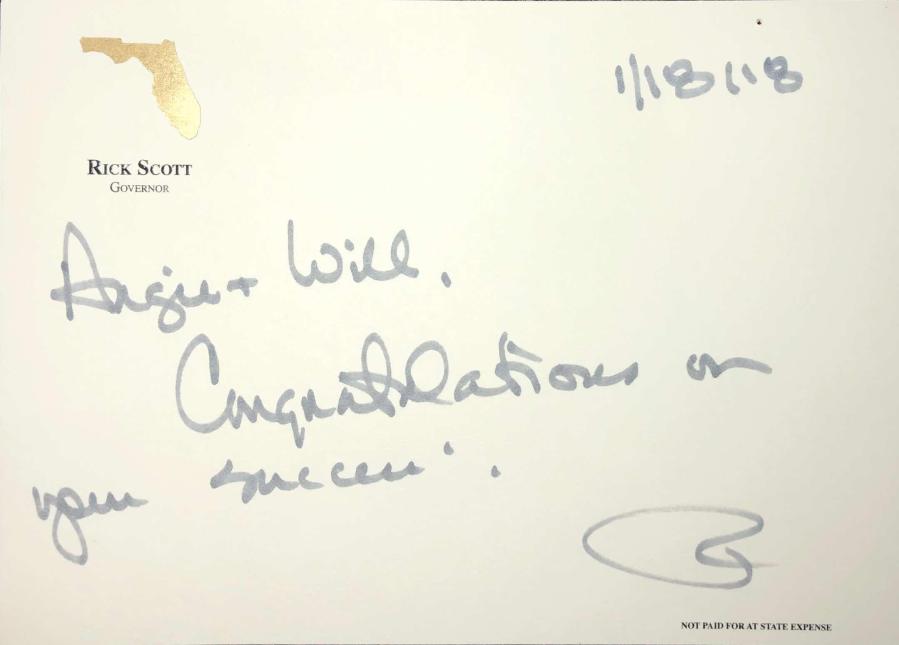 1/18/18
RICK SCOTT
GOVERNOR
Angie + Will,
Congratulations on
your success.
NOT PAID FOR AT STATE EXPENSE